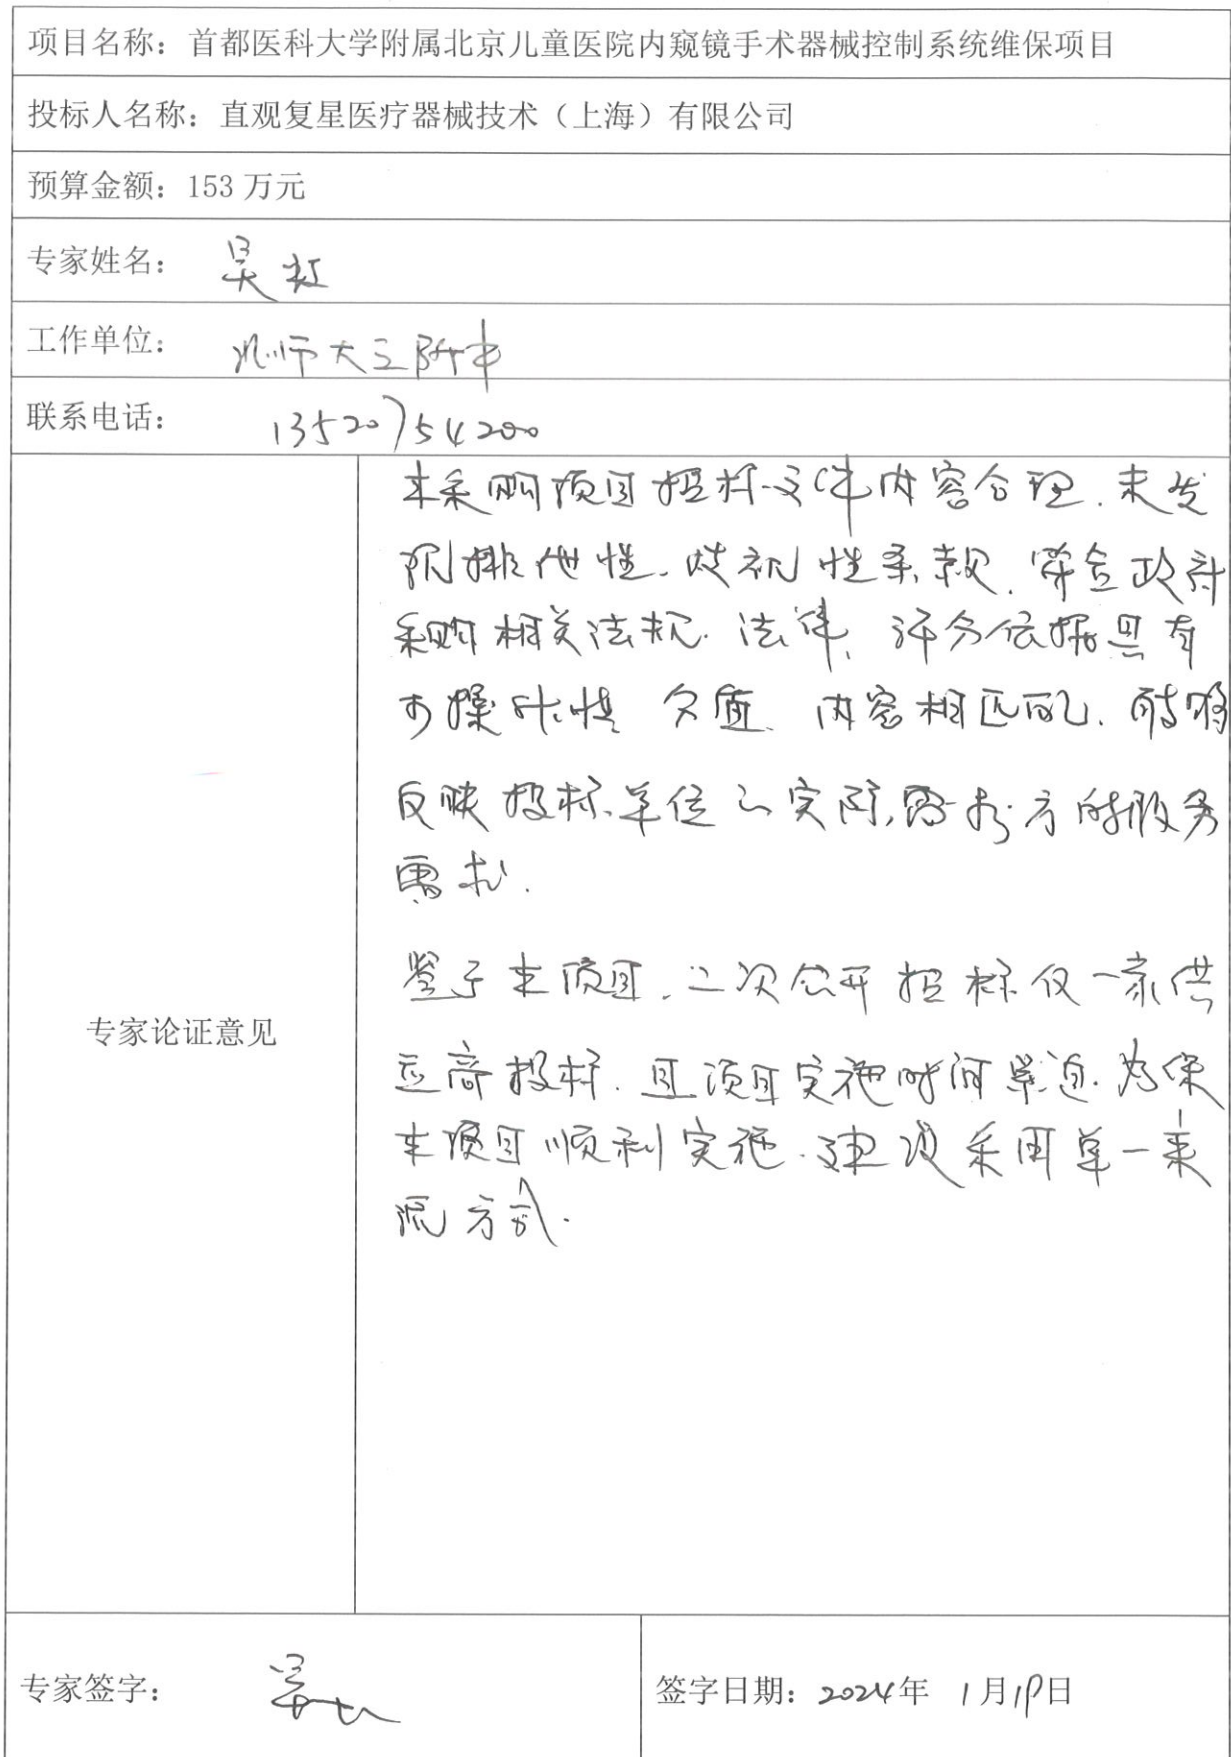 项目名称：首都医科大学附属北京儿童医院内窥镜手术器械控制系统维保项目
投标人名称：直观复星医疗器械技术（上海）有限公司
预算金额：153 万元
专家姓名： 吴
工作单位： 北师大三附中
联系电话： 13520754200
本采购项目招标文件内容合理.未发
现排他性.歧视性条款.符合政府
采购相关法规.法律.评分依据具有
可操作性 分值.内容相匹配.能够
反映投标单位 实际, 方的服务
需求.
鉴于本项目.二次公开招标仅一家供
应商投标.且项目实施时间紧迫.为保
本项目顺利实施.建议采用单一来
源方式.
专家论证意见
专家签字： 吴
签字日期：2024年 1月19日